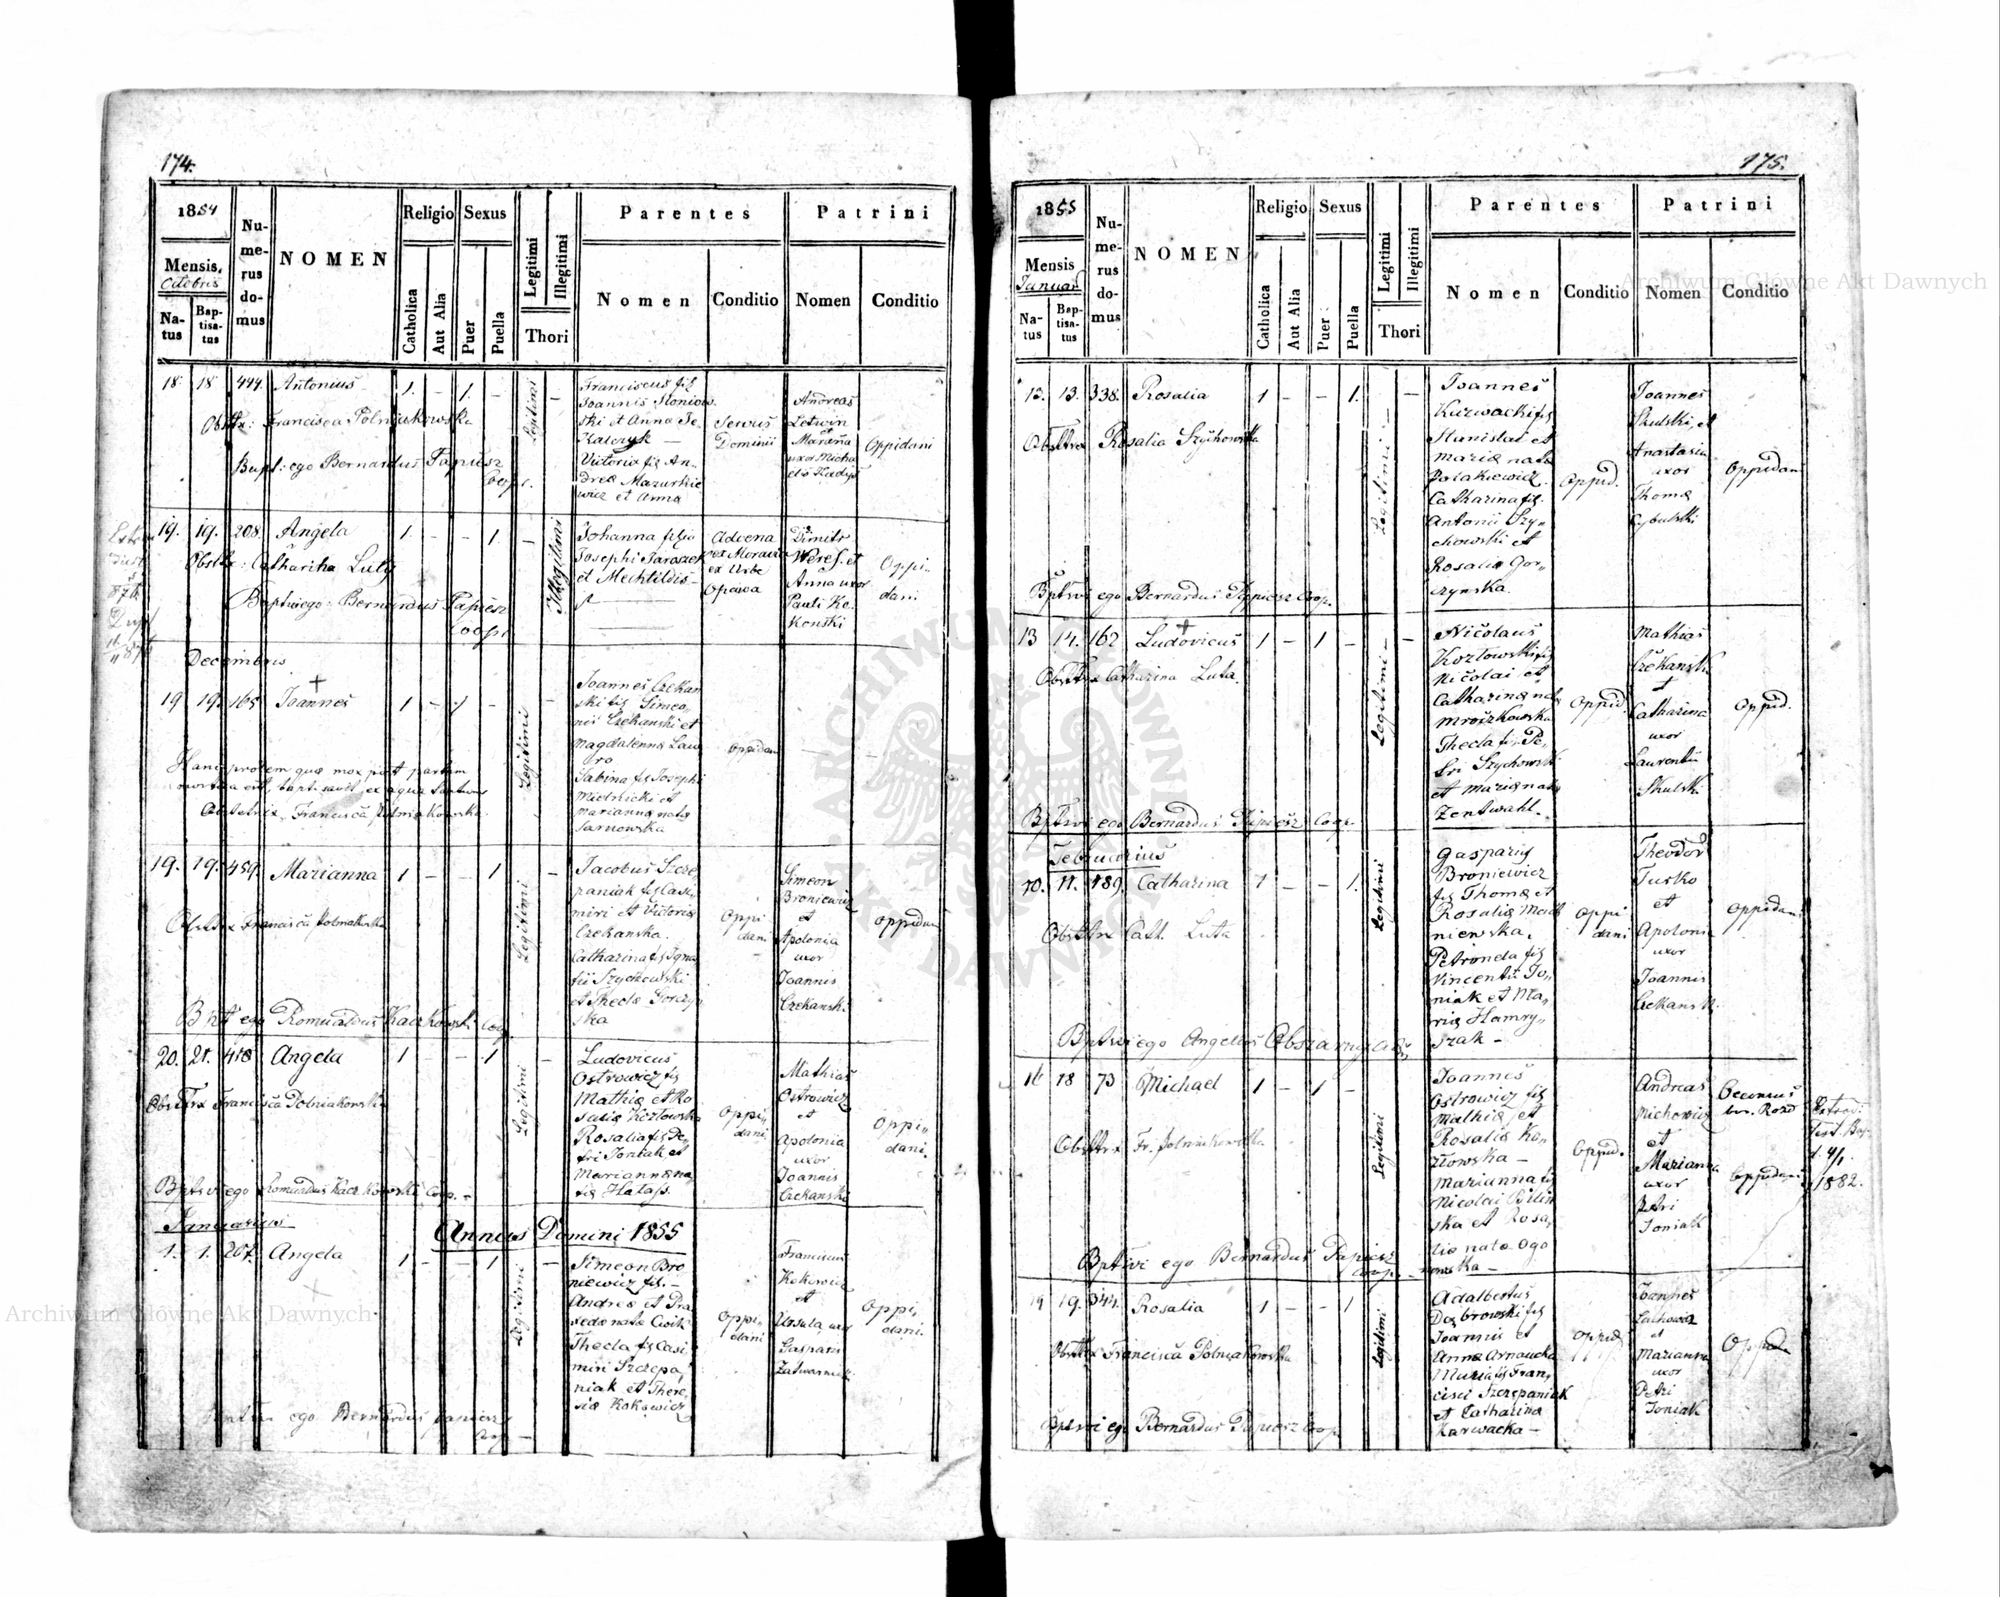 174.
1854
Mensis,
Octobris
Na-
tus
Bap-
tisa-
tus
Nu-
me-
rus
do-
mus
NOMEN
Religio
Catholica
Aut Alia
Sexus
Puer
Puella
Legitimi
Illegitimi
Thori
Parentes
Nomen
Conditio
Patrini
Nomen
Conditio
18 18 444. Antonius 1. – 1. –
Legitimi
Obsttx: Francisca Polniakowska
Bapt: ego Bernardus Papiesz
Coop.
Franciscus fil
Joannis Słoniow
ski et Anna
Victoria fil An
drea Mazurkie
wicz et Anna
Servus
Dominii
Andreas
Litwin
et
Marianna
uxor Micha
Oppidani
19. 19. 208. Angela 1. – – 1 –
Illegitimi
Obsttx: Catharina Luta
Baptivi ego: Bernardus Papiesz
Coop.
Johanna filia
Josephi
et Mechtildis –
Advena
ex Moravia
ex Urbe
Opava
Dimitr
Weres. et
Anna uxor
Pauli Ke-
Konski
Oppi-
dani
Decembris
19 19. 165 Joannes 1 – 1 – –
Legitimi
Hanc prolem quae mox post partum
mortua est, baptisavit ex aqua tantum
Obstetrix Francisca Polniakowska
Joannes Czekan
ski fil Simeo,
nis Czekanski et
Magdalenna Law
ro
Sabina fil Josephi
Mielnicki et
Marianna nata
Sarnowska
Oppidani
19. 19. 459. Marianna 1 – – 1 –
Legitimi
Obsttrx Francisca Polniakowska
Bpt ego Romualdus Kaczkowski Coop.
Jacobus Szcze
paniak fil Casi,
miri et Victoria
Czekanska.
Catharina fil Igna
tii Szychowski
et Thecla Gorczy,
ska
Oppi
dani
Simeon
Broniewicz
et
Apolonia
uxor
Joannis
Czekanski
Oppidani
20. 21. 418 Angela 1 – 1 –
Legitimi
Obsttrx Francisca Polniakowska
Bptsvi ego Romualdus Kaczkowski Coop. –
Ludovicus
Ostrowicz fil
Mathia et Ro
salia Kozłowska
Rosalia fil Pe,
tri Toniak et
Marianna na,
ta Hatass.
Oppi,
dani
Mathias
Ostrowicz
et
Apolonia
uxor
Joannis
Czekanski
Oppi,
dani.
Januarius
Annus Domini 1855
1. 1. 207. Angela 1 – – 1 –
Legitimi
Bptsvi ego Bernardus Papiesz
Coop –
Simeon Bro
niewicz fil. –
Andrea et Pra
xeda nata Cwik
Thecla fil Casi
miri Szczepa,
niak et There
sia Kokowicz
Oppi,
dani
Franciscus
Kokowicz
et
Ursula uxor
Gaspari
Oppi,
dani.
175.
1855
Mensis
Januar
Na-
tus
Bap-
tisa-
tus
Nu-
me-
rus
do-
mus
NOMEN
Religio
Catholica
Aut Alia
Sexus
Puer
Puella
Legitimi
Illegitimi
Thori
Parentes
Nomen
Conditio
Patrini
Nomen
Conditio
13. 13. 338. Rosalia 1 – – 1. –
Legitimi –
Obsttrx Rosalia Szychowska
Bptsvi ego Bernardus Papiesz Coop.
Joannes
Karwacki fil
Stanislai et
Maria nata
Polakiewicz.
Catharina fil.
Antonii Szy,,
chowski et
Rosalia Gor,
czynska.
Oppid.
Joannes
Skulski, et
Anastasia
uxor
Thoma
Cybulski
Oppidani
13 14. 162 Ludovicus 1 – 1 – –
Legitimi –
Obsttrx Catharina Luta.
Bptsvi ego Bernardus Papiesz Coop.
Nicolaus
Kozłowski fil
Nicolai et
Catharina nata
Mroczkowska
Thecla fil. Pe,
tri Szychowski
et Maria nata
Zentwahl.
Oppid.
Mathias
Czekanski
et
Catharina
uxor
Laurentii
Skulski
Oppid.
Februarius
10. 11. 189. Catharina 1 – – 1.
Legitimi
Obsttrx Cath. Luta
Bptsvi ego Angellus
Gasparus
Broniewicz
fil Thoma et
Rosalia Mach
niewska.
Petronela fil
Vincentii To,,
niak et Ma,
ria Hamry,,
szak –
Oppi
dani
Theodor
Turko
et
Apolonia
uxor
Joannis
Czekanski
Oppidani
16 18 73 Michael 1 – 1 –
Legitimi
Obsttrx Fr. Polniakowska
Bptsvi ego Bernardus Papiesz
Coop. –
Joannes
Ostrowicz fil
Mathia, et
Rosalia Ko,
złowska –
Marianna fil
Nicolai Bilin
ska et Rosa,
lia nata Ogo
nowska –
Oppid.
Andreas
Michowicz
et
Marianna
uxor
Petri
Toniak
Oeconus
bon. Rozd
Oppidani
Extrad:
Test. Bap
d. 4/1
1882.
19 19. 344. Rosalia 1 – – 1
Legitimi
Obsttrx Francisca Polniakowska
Bptsvi ego Bernardus Papiesz Coop
Adalbertus
Dąbrowski fil
Joannis et
Anna Arnaucka
Maria fil Fran,
cisci Szczepaniak
et Catharina
Karwacka –
Oppid.
Joannes
Lachowicz
et
Marianna
uxor
Petri
Toniak
Oppidani
Archiwum Główne Akt Dawnych
Archiwum Główne Akt Dawnych
ARCHIWUM GŁÓWNE AKT DAWNYCH